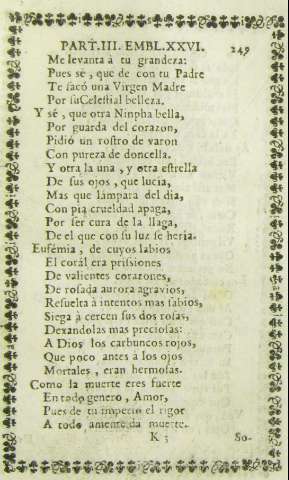 PART.III. EMBL.XXVI. 249
Me levanta à tu grandeza:
Pues sé, que de con tu Padre
Te sacó una Virgen Madre
Por su Celestial belleza.
Y sé, que otra Ninpha bella,
Por guarda del corazon,
Pidiò un rostro de varon
Con pureza de doncella.
Y otra la una, y otra estrella
De sus ojos, que lucia,
Mas que lámpara del dia,
Con pia crueldad apaga,
Por ser cura de la llaga,
De el que con su luz se heria.
Eufémia, de cuyos labios
El corál era prissiones
De valientes corazones,
De rosada aurora agravios,
Resuelta à intentos mas sabios,
Siega à cercen sus dos rosas,
Dexandolas mas preciosas:
A Dios los carbuncos rojos,
Que poco antes à los ojos
Mortales, eran hermosas.
Como la muerte eres fuerte
En todo genero, Amor,
Pues de tu imperio el rigor
A todo amente da muerte.
K 3 So-